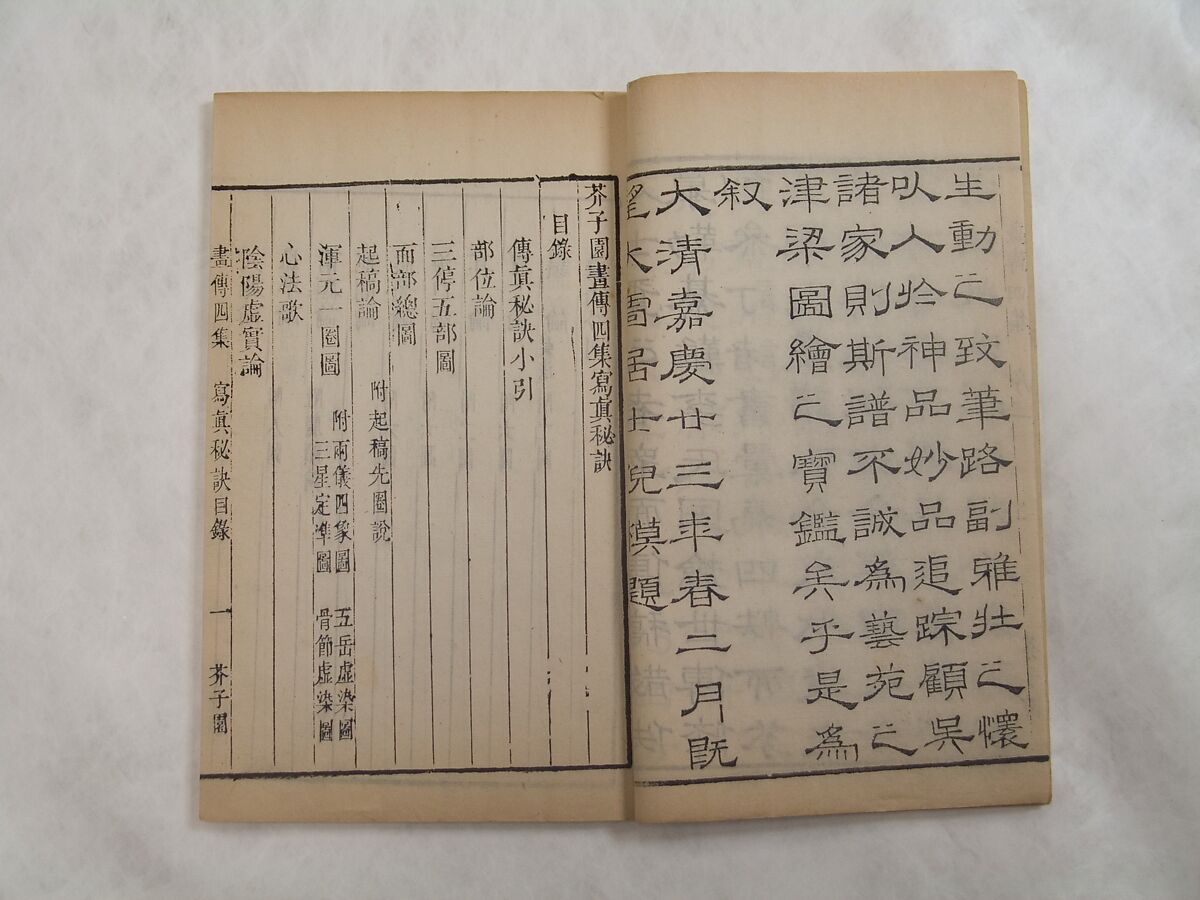 生動之致筆路副雅壯之懷
以人於神品妙品追踪顧吳
諸家則斯譜不誠為藝苑之
津梁圖繪之寶鑑矣乎是為
叙
大清嘉慶廿三年春二月既
望水窗居士倪模題
芥子園畫傳四集寫眞秘訣
目錄
傳眞秘訣小引
部位論
三停五部圖
面部總圖
起稿論 附起稿先圈說
渾元一圈圖 附兩儀四象圖 五岳虛染圖
三星定準圖 骨節虛染圖
心法歌
陰陽虛實論
畫傳四集 寫眞秘訣目錄 一 芥子園